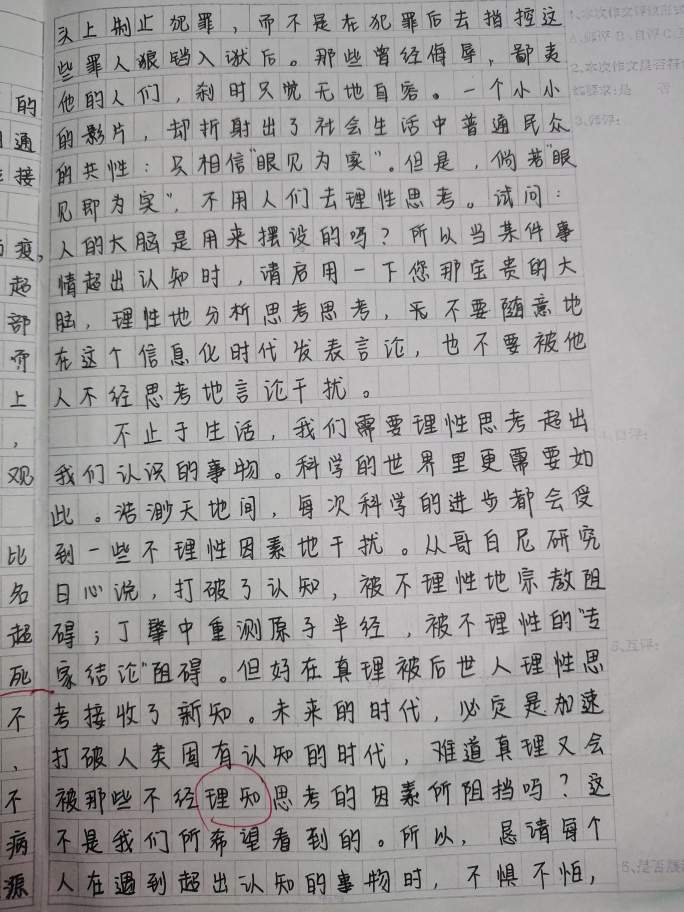 头上制止犯罪，而不是在犯罪后去指控这
些罪人狼铛入狱后。那些曾经侮辱，鄙夷
他的人们，刹时只觉无地自容。一个小小
的影片，却折射出了社会生活中普通民众
的共性：只相信"眼见为实"。但是，倘若"眼
见即为实"，不用人们去理性思考。试问：
人的大脑是用来摆设的吗？所以当某件事
情超出认知时，请启用一下您那宝贵的大
脑，理性地分析思考思考，无不要随意地
在这个信息化时代发表言论，也不要被他
人不经思考地言论干扰。
不止于生活，我们需要理性思考超出
我们认识的事物。科学的世界里更需要如
此。浩渺天地间，每次科学的进步都会受
到一些不理性因素地干扰。从哥白尼研究
日心说，打破了认知，被不理性地宗教阻
碍；丁肇中重测原子半经，被不理性的"专
家结论"阻碍。但好在真理被后世人理性思
考接收了新知。未来的时代，必定是加速
打破人类固有认知的时代，难道真理又会
被那些不经理知思考的因素所阻挡吗？这
不是我们所希望看到的。所以，恳请每个
人在遇到超出认知的事物时，不惧不怕，
的
通
接
疫，
超
部
而
上
，
观
比
名
超
死
不
，
不
病
源
3、师评：
4、自评：
5、互评：